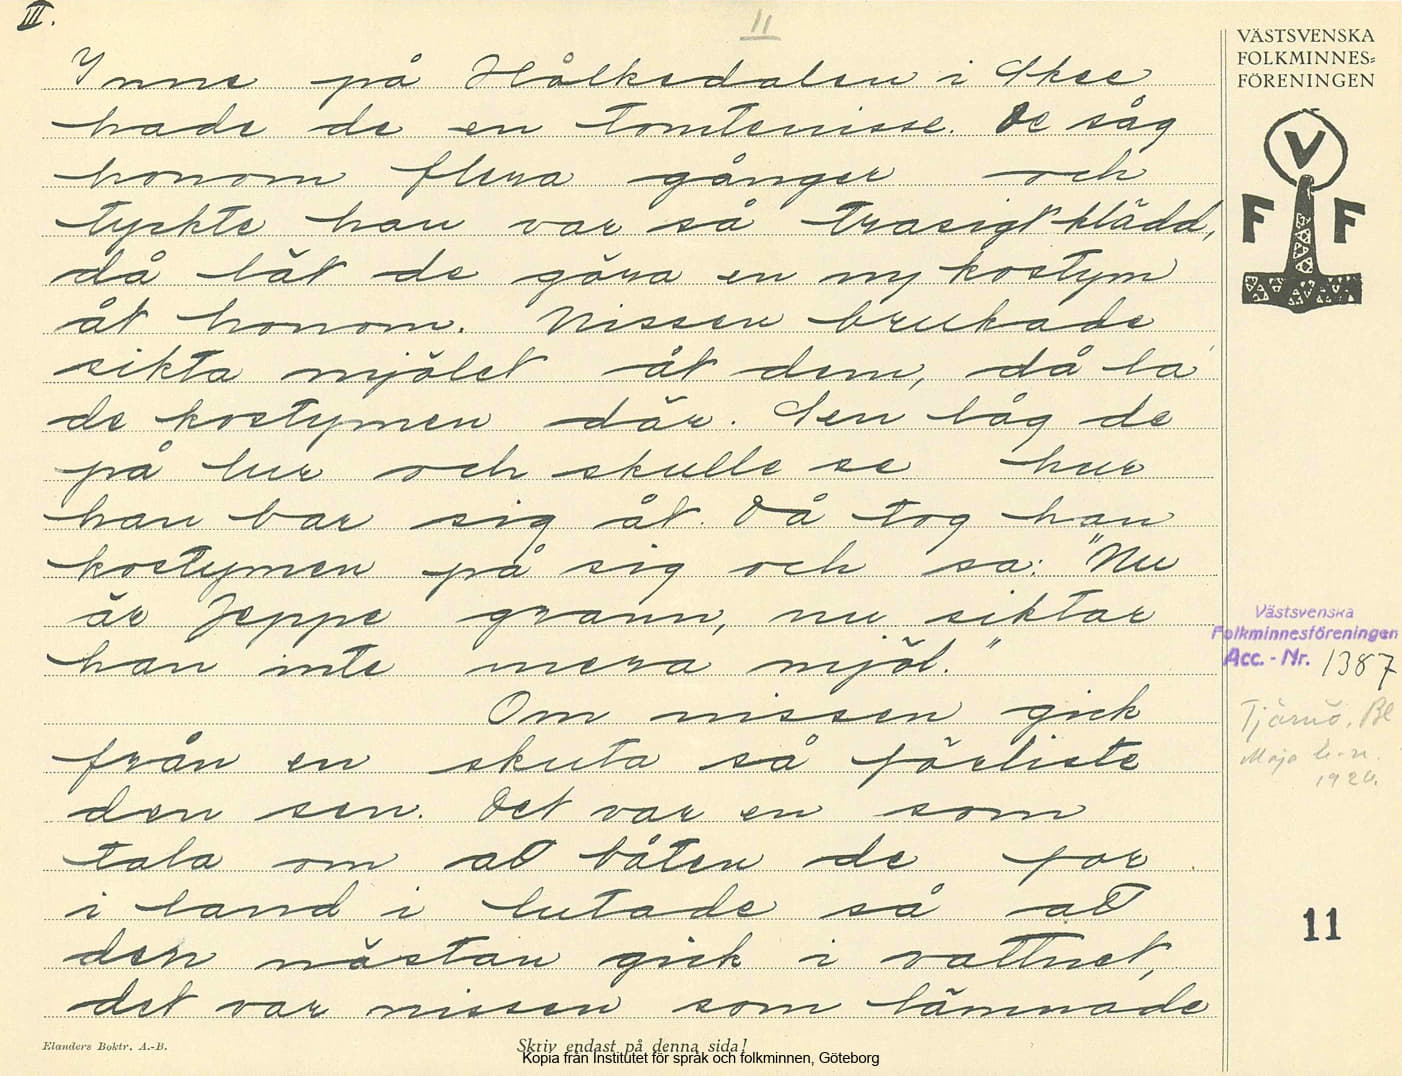 III.
11
VÄSTSVENSKA
FOLKMINNES-
FÖRENINGEN
V
F F
Inne på Hålkedalen i Skee
hade de en tomtenisse. De såg
honom flera gånger och
tyckte han var så trasigt klädd,
då lät de göra en ny kostym
åt honom. Nissen brukade
sikta mjölet åt dem, då la'
de kostymen där. Sen låg de
på lur och skulle se hur
han bar sig åt. Då tog han
kostymen på sig och sa: "Nu
är Jeppe grann, nu siktar
han inte mera mjöl."
Om nissen gick
från en skuta så förliste
den sen. Det var en som
tala om att båten de for
i land i lutade så att
den nästan gick i vattnet,
det var nissen som lämnade
Västsvenska
Folkminnesföreningen
Acc. - Nr. 1387
Tjärnö, Bl
Maja
1926.
11
Elanders Boktr. A.-B.
Skriv endast på denna sida!
Kopia från Institutet för språk och folkminnen, Göteborg